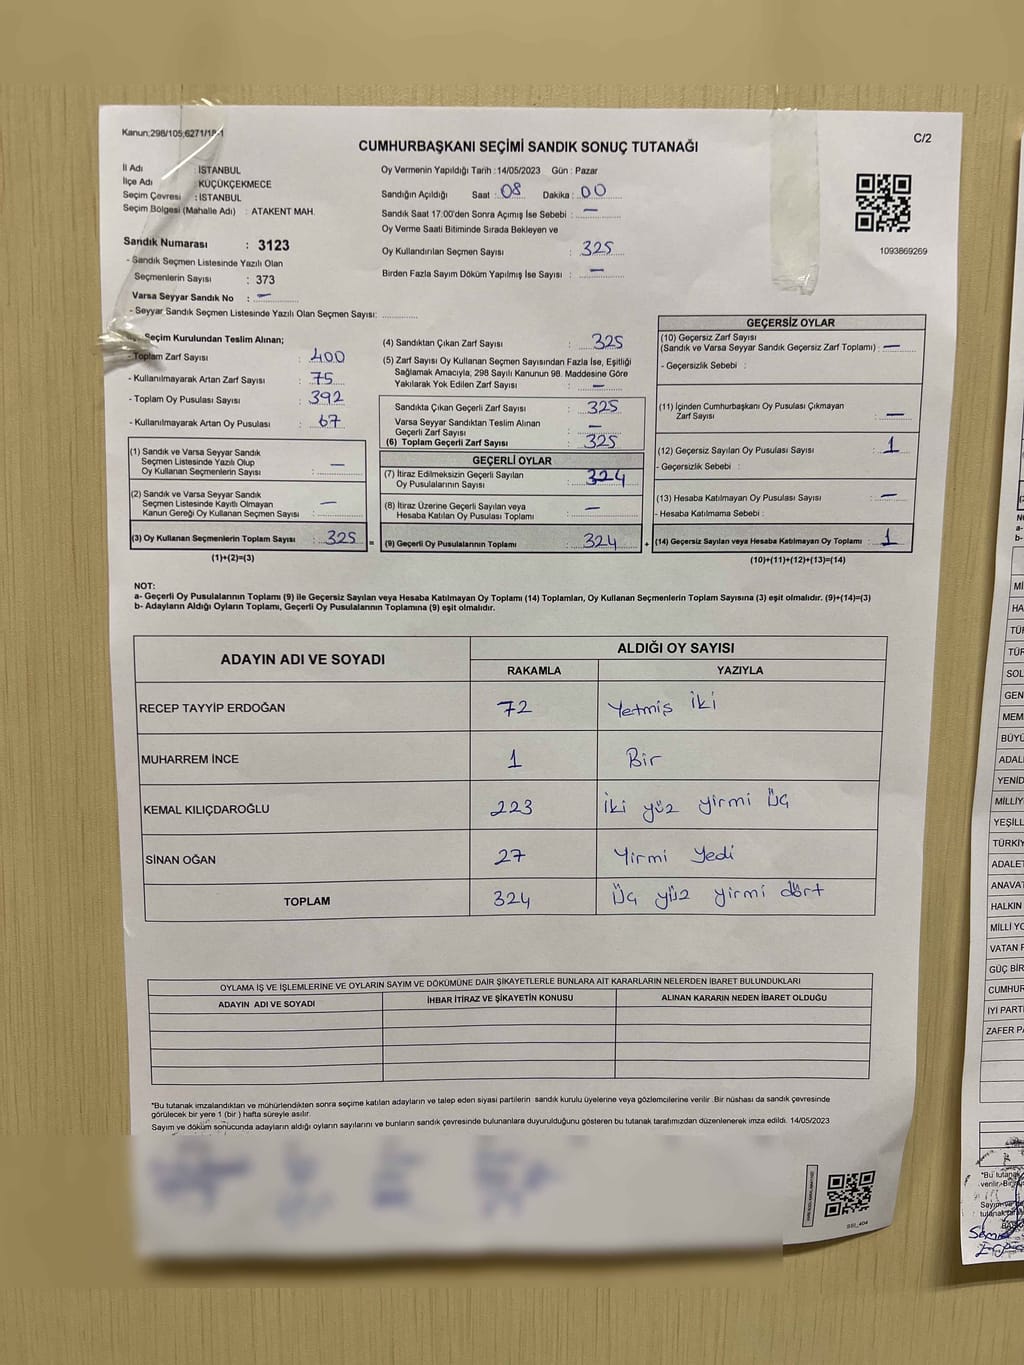 Kanun;298/105;6271/18-1
C/2
CUMHURBAŞKANI SEÇİMİ SANDIK SONUÇ TUTANAĞI
İl Adı : İSTANBUL
İlçe Adı : KÜÇÜKÇEKMECE
Seçim Çevresi : İSTANBUL
Seçim Bölgesi (Mahalle Adı) : ATAKENT MAH.
Sandık Numarası : 3123
- Sandık Seçmen Listesinde Yazılı Olan
Seçmenlerin Sayısı : 373
Varsa Seyyar Sandık No : —
- Seyyar Sandık Seçmen Listesinde Yazılı Olan Seçmen Sayısı:
Oy Vermenin Yapıldığı Tarih :14/05/2023 Gün : Pazar
Sandığın Açıldığı Saat : 08 Dakika : 00
Sandık Saat 17:00'den Sonra Açımış İse Sebebi : —
Oy Verme Saati Bitiminde Sırada Bekleyen ve
Oy Kullandırılan Seçmen Sayısı : 325
Birden Fazla Sayım Döküm Yapılmış İse Sayısı : —
1093869269
Seçim Kurulundan Teslim Alınan;
- Toplam Zarf Sayısı : 400
- Kullanılmayarak Artan Zarf Sayısı : 75
- Toplam Oy Pusulası Sayısı : 392
- Kullanılmayarak Artan Oy Pusulası : 67
(1) Sandık ve Varsa Seyyar Sandık
Seçmen Listesinde Yazılı Olup
Oy Kullanan Seçmenlerin Sayısı : —
(2) Sandık ve Varsa Seyyar Sandık
Seçmen Listesinde Kayıtlı Olmayan
Kanun Gereği Oy Kullanan Seçmen Sayısı : —
(3) Oy Kullanan Seçmenlerin Toplam Sayısı : 325
(1)+(2)=(3)
(4) Sandıktan Çıkan Zarf Sayısı : 325
(5) Zarf Sayısı Oy Kullanan Seçmen Sayısından Fazla İse, Eşitliği
Sağlamak Amacıyla, 298 Sayılı Kanunun 98. Maddesine Göre
Yakılarak Yok Edilen Zarf Sayısı : —
Sandıkta Çıkan Geçerli Zarf Sayısı : 325
Varsa Seyyar Sandıktan Teslim Alınan
Geçerli Zarf Sayısı : —
(6) Toplam Geçerli Zarf Sayısı : 325
GEÇERLİ OYLAR
(7) İtiraz Edilmeksizin Geçerli Sayılan
Oy Pusulalarının Sayısı : 324
(8) İtiraz Üzerine Geçerli Sayılan veya
Hesaba Katılan Oy Pusulası Toplamı : —
= (9) Geçerli Oy Pusulalarının Toplamı : 324
GEÇERSİZ OYLAR
(10) Geçersiz Zarf Sayısı
(Sandık ve Varsa Seyyar Sandık Geçersiz Zarf Toplamı) : —
- Geçersizlik Sebebi :
(11) İçinden Cumhurbaşkanı Oy Pusulası Çıkmayan
Zarf Sayısı : —
(12) Geçersiz Sayılan Oy Pusulası Sayısı : 1
- Geçersizlik Sebebi :
(13) Hesaba Katılmayan Oy Pusulası Sayısı : —
- Hesaba Katılmama Sebebi :
+ (14) Geçersiz Sayılan veya Hesaba Katılmayan Oy Toplamı : 1
(10)+(11)+(12)+(13)=(14)
NOT:
a- Geçerli Oy Pusulalarının Toplamı (9) ile Geçersiz Sayılan veya Hesaba Katılmayan Oy Toplamı (14) Toplamları, Oy Kullanan Seçmenlerin Toplam Sayısına (3) eşit olmalıdır. (9)+(14)=(3)
b- Adayların Aldığı Oyların Toplamı, Geçerli Oy Pusulalarının Toplamına (9) eşit olmalıdır.
ADAYIN ADI VE SOYADI
ALDIĞI OY SAYISI
RAKAMLA YAZIYLA
RECEP TAYYİP ERDOĞAN 72 Yetmiş iki
MUHARREM İNCE 1 Bir
KEMAL KILIÇDAROĞLU 223 iki yüz yirmi üç
SİNAN OĞAN 27 Yirmi Yedi
TOPLAM 324 Üç yüz yirmi dört
OYLAMA İŞ VE İŞLEMLERİNE VE OYLARIN SAYIM VE DÖKÜMÜNE DAİR ŞİKAYETLERLE BUNLARA AİT KARARLARIN NELERDEN İBARET BULUNDUKLARI
ADAYIN ADI VE SOYADI İHBAR İTİRAZ VE ŞİKAYETİN KONUSU ALINAN KARARIN NEDEN İBARET OLDUĞU
"Bu tutanak imzalandıktan ve mühürlendikten sonra seçime katılan adayların ve talep eden siyasi partilerin sandık kurulu üyelerine veya gözlemcilerine verilir .Bir nüshası da sandık çevresinde
görülecek bir yere 1 (bir ) hafta süreyle asılır.
Sayım ve döküm sonucunda adayların aldığı oyların sayılarını ve bunların sandık çevresinde bulunanlara duyurulduğunu gösteren bu tutanak tarafımızdan düzenlenerek imza edildi. 14/05/2023
SSI_404
a-
b-
Mİ
HA
TÜR
TÜR
SOL
GEN
MEM
BÜYÜ
ADAL
YENİD
MİLLİY
YEŞİLL
TÜRKİY
ADALET
ANAVAT
HALKIN
MİLLİ YO
VATAN P
GÜÇ BİR
CUMHUR
İYİ PARTİ
ZAFER PA
"Bu tutana
verilir.Bir